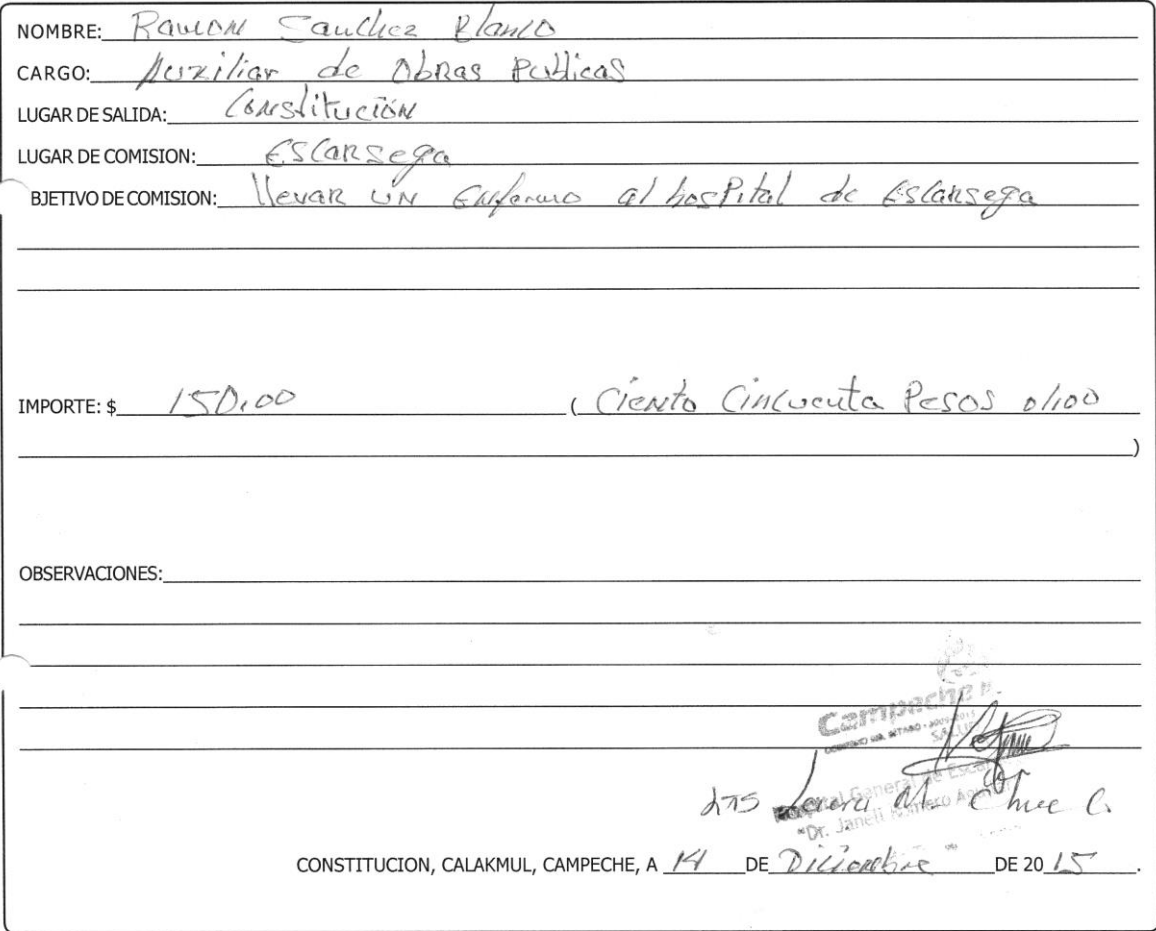 NOMBRE: Ramon Sanchez Blanco
CARGO: Auxiliar de Obras Publicas
LUGAR DE SALIDA: Constitución
LUGAR DE COMISION: Escarsega
BJETIVO DE COMISION: llevar un Enfermo al hospital de Escarsega
IMPORTE: $ 150.00 ( Ciento Cincuenta Pesos 0/100
)
OBSERVACIONES:
Campeche
SALUD
Hospital General de
"Dr. Janell Romero
CONSTITUCION, CALAKMUL, CAMPECHE, A 14 DE Diciembre DE 20 15.